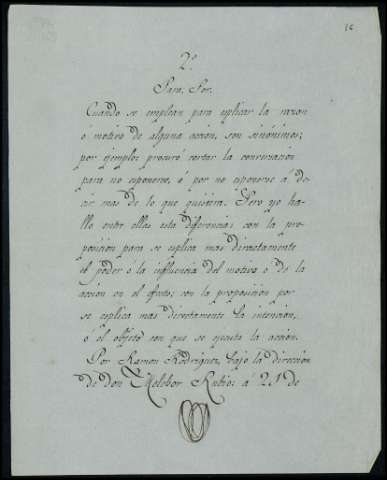 2º
Para, Por.
Cuando se emplean para esplicar la razon
ó motivo de alguna accion, son sinónimos;
por ejemplo: procuró cortar la conversacion
para no esponerse, ó por no esponerse á de-
cir mas de lo que quisiera. Pero yo ha-
llo entre ellos esta diferencia: con la pro-
posicion para se esplica mas directamente
el poder ó la influencia del motivo ó de la
accion en el efecto; con la proposicion por
se esplica mas directamente la intencion,
ó el objeto con que se ejecuta la accion.
Por Ramon Rodriguez, bajo la direccion
de don Melchor Rubio: á 21 de